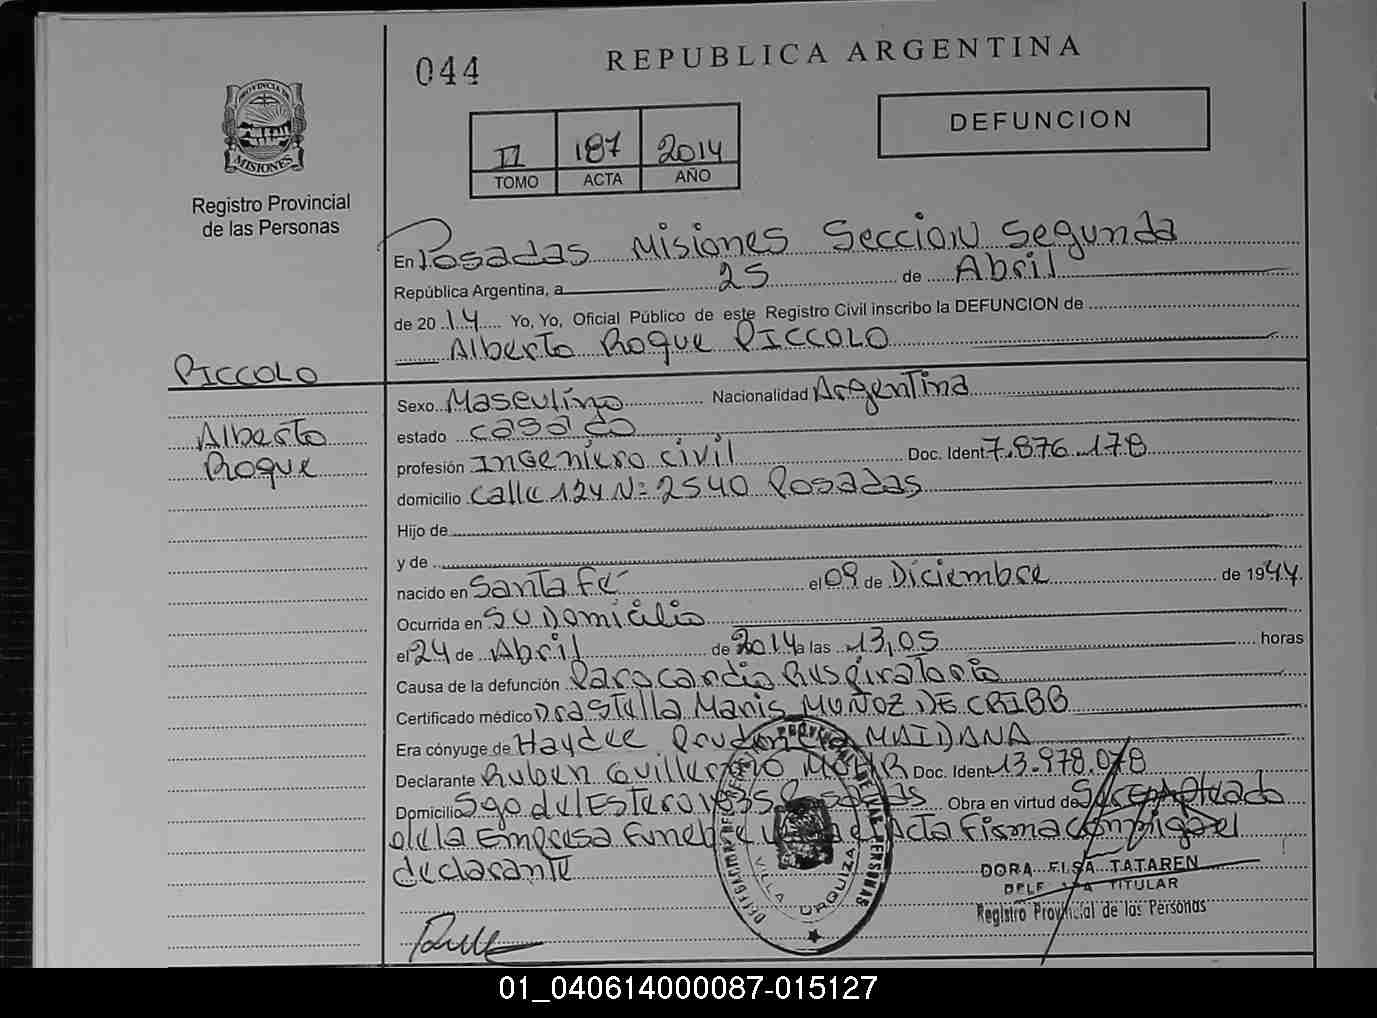 044
REPUBLICA ARGENTINA
DEFUNCION
II 187 2014
TOMO ACTA AÑO
PROVINCIA DE
MISIONES
Registro Provincial
de las Personas
En Posadas Misiones Seccion Segunda
República Argentina, a 25 de Abril
de 2014 Yo, Yo, Oficial Público de este Registro Civil inscribo la DEFUNCION de
Alberto Roque PICCOLO
PICCOLO
Alberto
Roque
Sexo Masculino Nacionalidad Argentina
estado casado
profesión Ingeniero civil Doc. Ident 7.876.178
domicilio calle 124 Nº 2540 Posadas
Hijo de
y de
nacido en Santa Fé el 09 de Diciembre de 1944
Ocurrida en su Domicilio
el 24 de Abril de 2014 a las 13,05 horas
Causa de la defunción Parocardio Respiratorio
Certificado médico Dra Stella Maris MUÑOZ DE CRIBB
Era cónyuge de Haydee Prudencia MAIDANA
Declarante Ruben Guillermo MOHR Doc. Ident 13.978.078
Domicilio Sgo del Estero 1835 Posadas Obra en virtud de Ser Empleado
de la Empresa Funebre Acta Firma conmigo el
declarante
VILLA URQUIZA
DORA ELSA TATAREN
TITULAR
Registro Provincial de las Personas
01_040614000087-015127